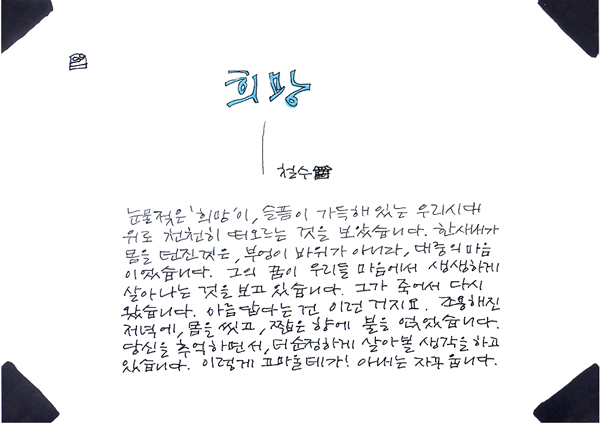 희망
철수
눈물젖은 '희망'이, 슬픔이 가득해 있는 우리시대
위로 천천히 떠오르는 것을 보았습니다. 한사내가
몸을 던진것은, 부엉이 바위가 아니라, 대중의 마음
이었습니다. 그의 꿈이 우리들 마음에서 생생하게
살아나는 것을 보고 있습니다. 그가 죽어서 다시
왔습니다. 아름답다는 건 이런 거지요. 고요해진
저녁에, 몸을 씻고, 짧은 향에 불을 였었습니다.
당신을 추억하면서, 더순정하게 살아볼 생각을 하고
있습니다. 이렇게 고마울데가! 아내는 자꾸 웁니다.